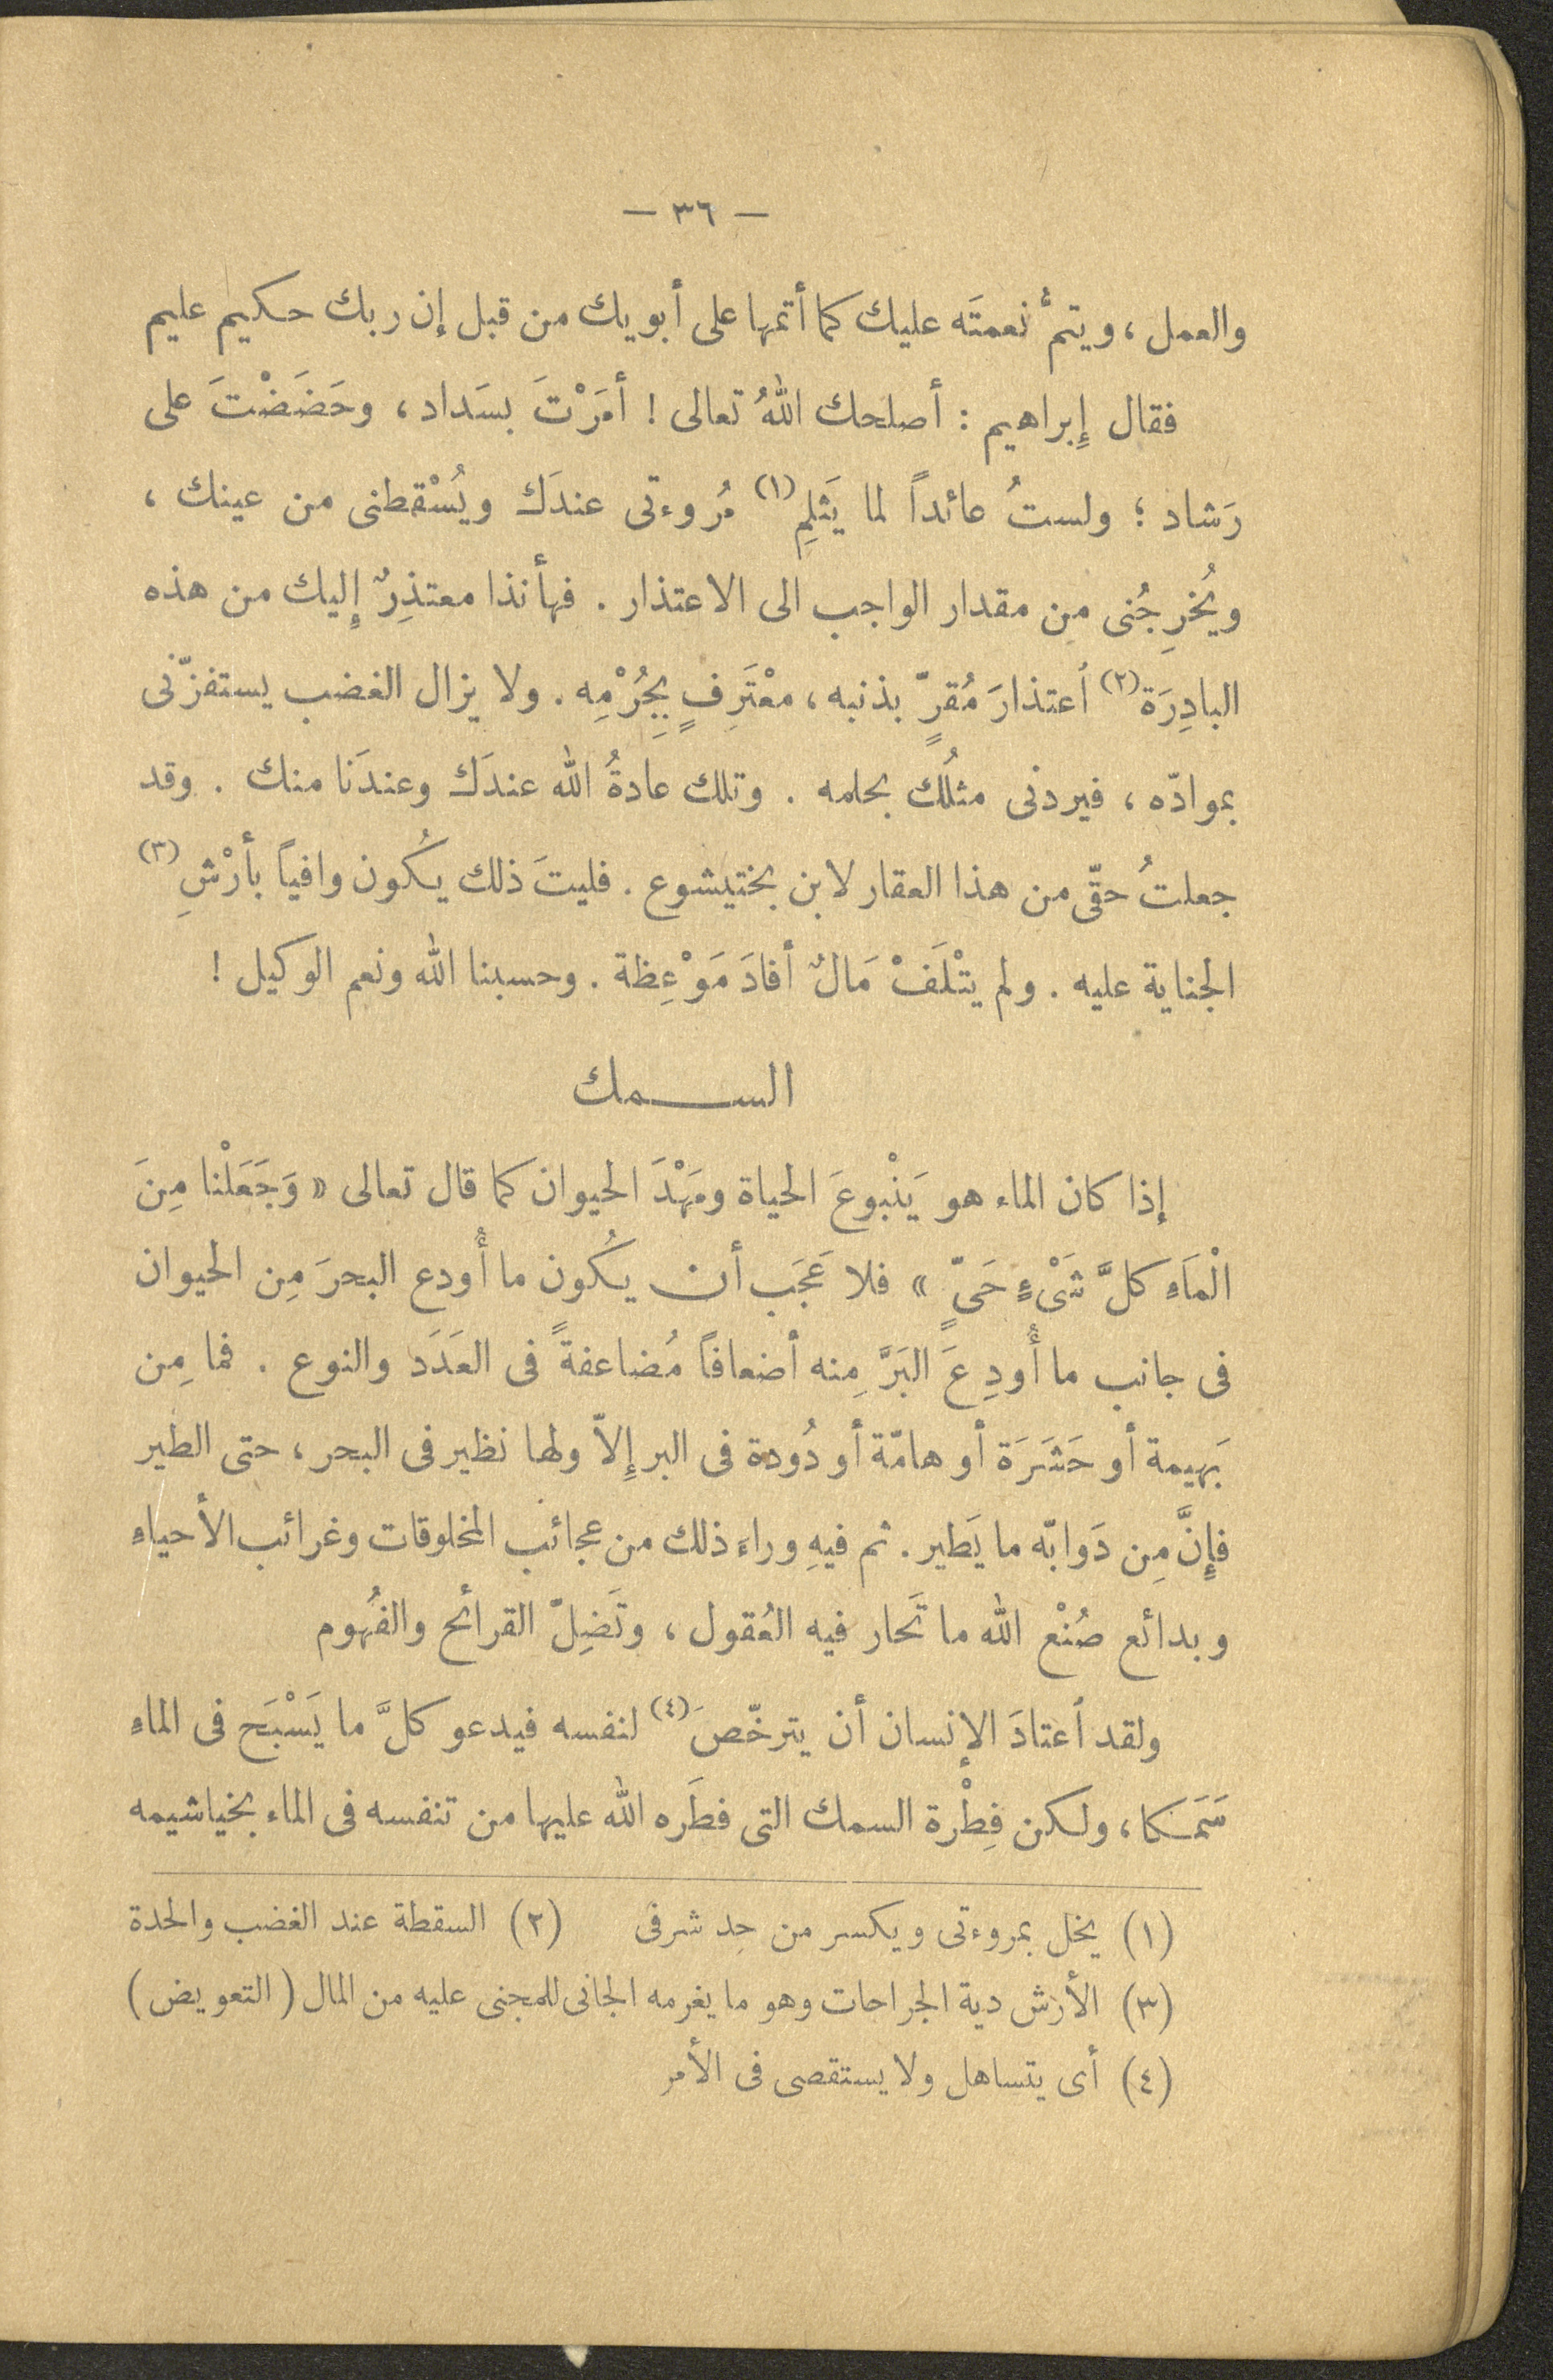 — ٣٦ —
والعمل ، ويتمُّ نعمتَه عليك كما أتمها على أبويك من قبل إن ربك حكيم عليم
فقال إِبراهيم : أصلحك اللهُ تعالى ! أمَرْتَ بسَداد ، وحَضَضْتَ على
رَشاد ؛ ولستُ عائداً لما يَثلِم (١) مُروءتى عندَك ويُسْقطنى من عينك ،
ويُخرِجُنى من مقدار الواجب الى الاعتذار . فهأنذا معتذِرٌ إِليك من هذه
البادِرَة (٢) أعتذارَ مُقرٍّ بذنبه ، معْتَرِفٍ بِجُرْمِه . ولا يزال الغضب يستفزّنى
بموادّه ، فيردنى مثلُك بحلمه . وتلك عادةُ الله عندَك وعندَنا منك . وقد
جعلتُ حقّى من هذا العقار لابن بختيشوع . فليتَ ذلك يكُون وافياً بأرْشِ (٣)
الجناية عليه . ولم يتْلَفْ مَالٌ أفادَ مَوْعِظة . وحسبنا الله ونعم الوكيل !
السمك
إذا كان الماء هو يَنْبوعَ الحياة ومَهْدَ الحيوان كما قال تعالى « وَجَعَلْنا مِنَ
الْمَاءِ كلَّ شَىْءٍ حَىٍّ » فلا عَجَب أن يكُون ما أُودع البحرَ مِن الحيوان
فى جانب ما أُودِعَ البَرَّ مِنه أضعافاً مُضاعفةً فى العَدَد والنوع . فما مِن
بَهيمة أو حَشَرَة أو هامّة أو دُودة فى البر إِلاّ ولها نظير فى البحر ، حتى الطير
فإِنَّ مِن دَوابّه ما يَطير . ثم فيهِ وراء ذلك من عجائب المخلوقات وغرائب الأحياءِ
وبدائع صُنْع الله ما تَحار فيه العُقول ، وتَضِلّ القرائح والفُهوم
ولقد أعتادَ الإنسان أن يترخّصَ (٤) لنفسه فيدعو كلَّ ما يَسْبَح فى الماءِ
سَمَكا ، ولكن فِطْرة السمك التى فطَره الله عليها من تنفسه فى الماء بخياشيمه
(١) يخل بمروءتى ويكسر من حِد شرفى (٢) السقطة عند الغضب والحدة
(٣) الأرش دية الجراحات وهو ما يغرمه الجانى للمجنى عليه من المال ( التعويض )
(٤) أى يتساهل ولا يستقصى فى الأمر